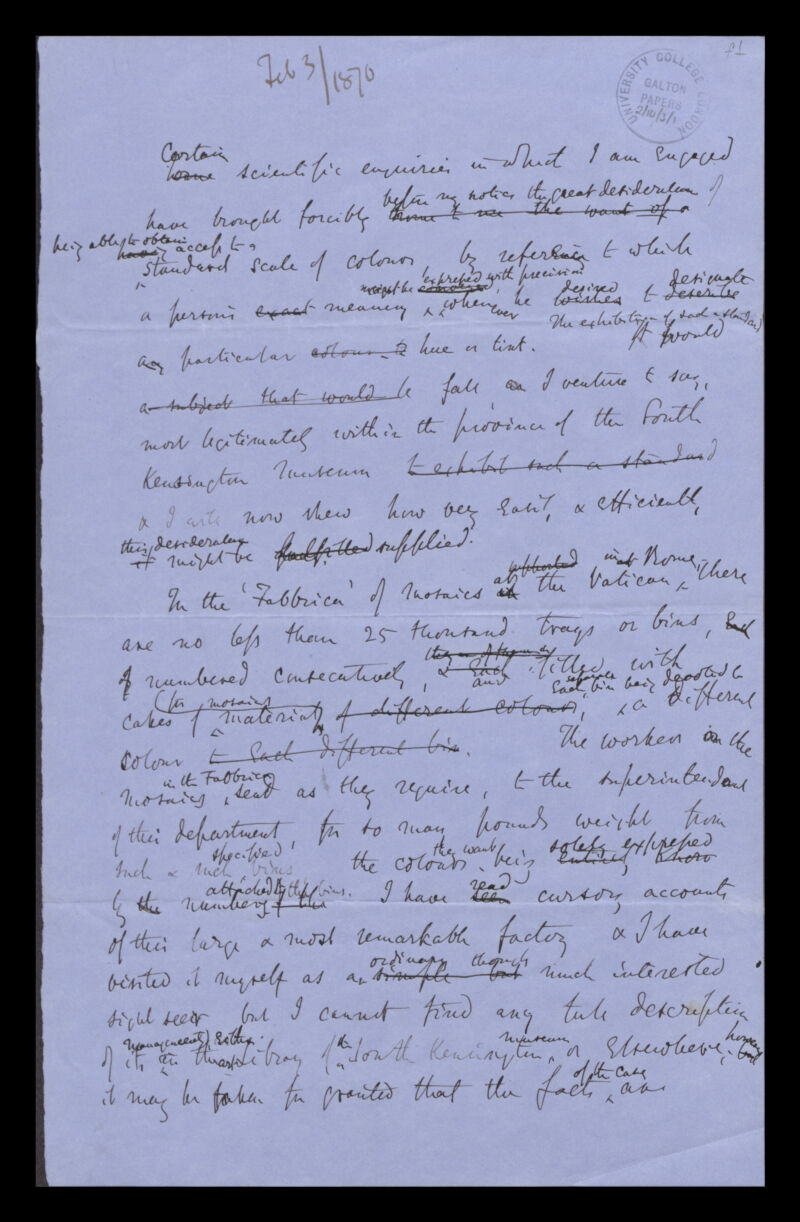 f1
Feb 3/1870
UNIVERSITY COLLEGE LONDON
GALTON
PAPERS
2/10/3/1
Certain
some scientific enquiries in which I am engaged
before my notice the great desideratum of
have brought forcibly home to me the want of a
being able to obtain
having access to a
standard scale of colours by reference to which
might be expressed with precision
a person's exact meaning whenever he desired wishes to designate describe
The exhibition of such a standard
any particular colour hue or tint. It would
a subject that would be fall as I venture to say,
most legitimately within the province of the South
Kensington Museum to exhibit such a standard
& I will now shew how very easily & efficiently
this desideratum
it might be fulfilled supplied.
In the 'Fabbrica' of mosaics at the Vatican, Rome, there
are no less than 25 thousand trays or bins, Each
of numbered consecutively, & Each and filled with
(for mosaics
cakes of material of different colours, Each bin being devoted to a different
colour to Each different bin. The workers in the
in the Fabbrica
mosaics send as they require, to the superintendant
of their department, for so many pounds weight from
specified
such & such bins the colours they want being entirely solely expressed
attached to the bins.
by the numbers of the I have seen read cursory accounts
of this large & most remarkable factory & I have
ordinary though
visited it myself as a simple but much interested
sight seer but I cannot find any full description
management) Either
of its in the library of the South Kensington museum, or Elsewhere, however
of the case
it may be taken for granted that the facts are